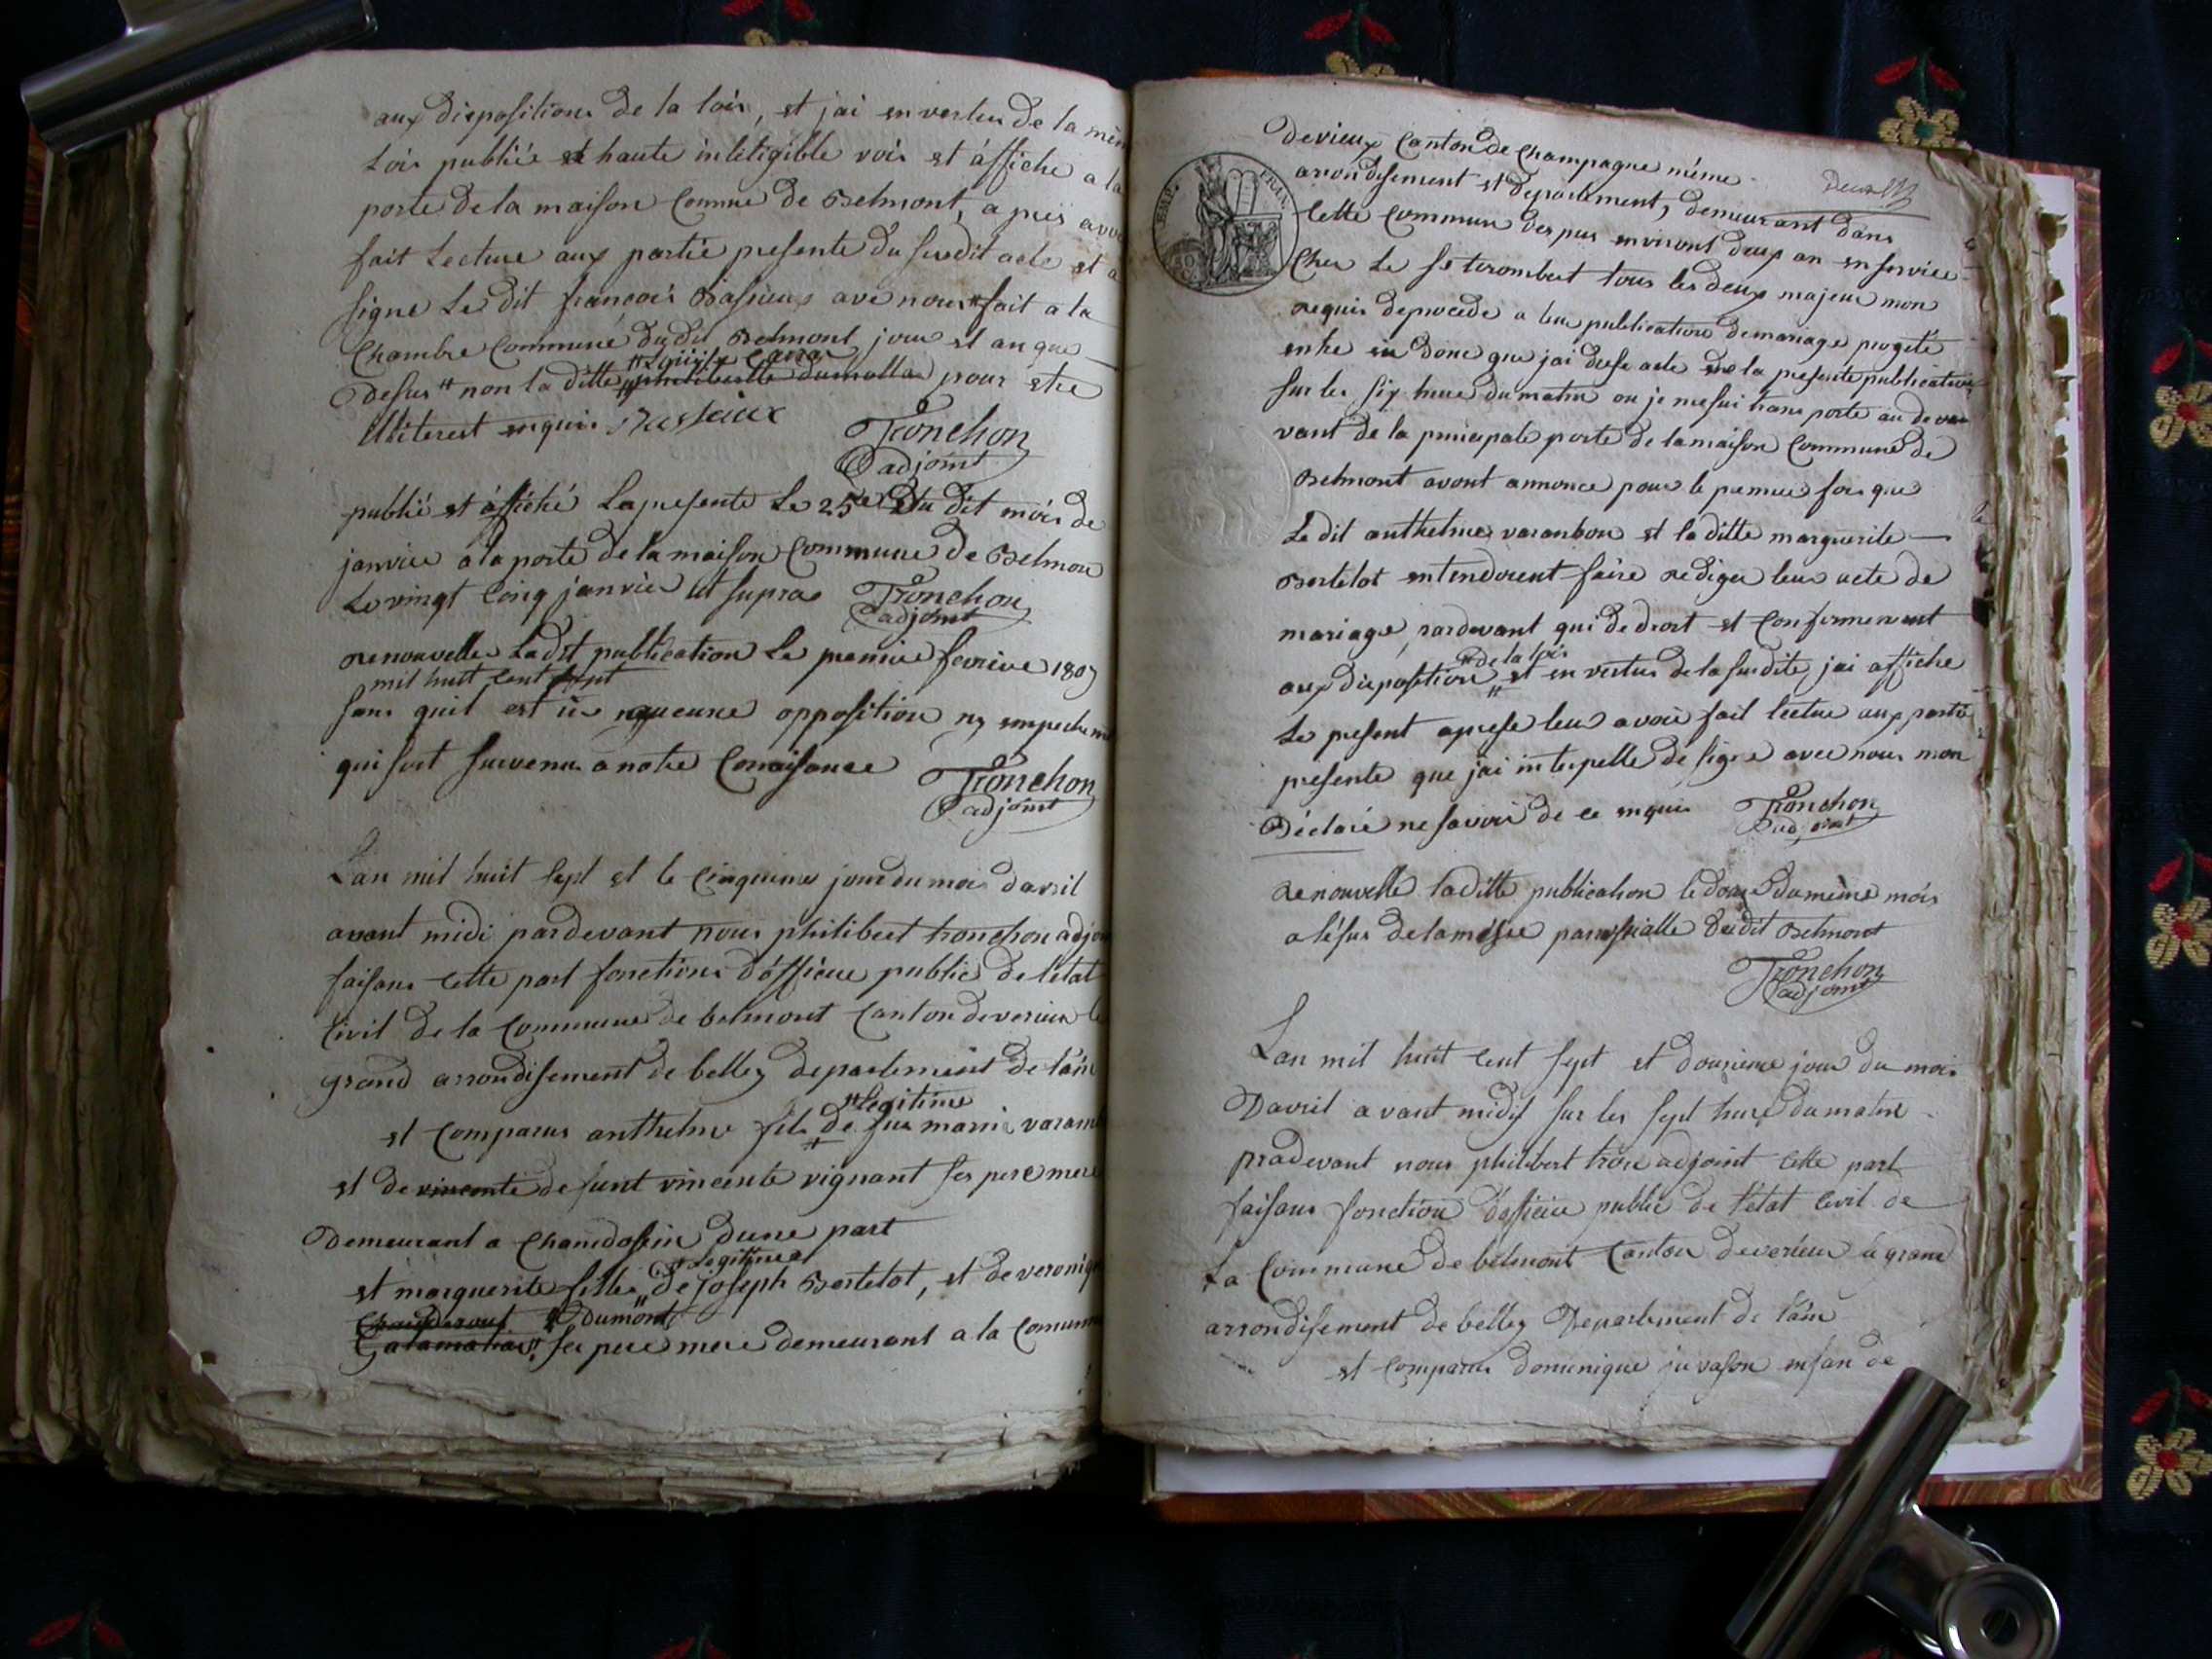 aux dispositions de la loix, et jai en vertus de la mêm
Loix publiée et haute inteligible voix et áffiche a la
porte de la maison Comune de Belmont, a preś avoi
fait Lecture aux partie presente du susdit acte et a
signe Le dit françois Bassieux ave nous # fait a la
Chambre Commune du dit Belmont jour et an que
desus # non la ditte philibertte dumolla pour etre
illiterest enquis Bassieux
Tronchon
adjoint
publié et áffiché La presente Le 25e du dit mois de
janvier a la porte de la maison Commune de Belmon
Le vingt Cinq janvier ut supra Tronchon
adjoint
renouvelle Ladit publication Le premier fevrier 1807
mil huit Cent sept
sans quil est ue aucune opposition ny empechem
qui soit survenu a notre Conaisance Tronchon
adjoint
Lan mil huit sept et le Cinquieme jour du mois davril
avant midi pardevant nous philibert tronchon adjoi
faisans cette part fonctions d'óffiċier public de l'état
Civil de la Commune de belmont Canton de virieux le
grand arrondisement de belley departement de l'ain
# legitime
et Comparus anthelme fils de feu marin varam
et de vincente defunt vincente vignant ses pere mere
demeurant a Chamdossin dune part
# Legittime
et marguerite fille de joseph Bertelot, et de veroniq
# Dumont
ses pere mere demeurant a la Comune
de vieux Canton de Champagne même
arrondisement et departement, demeurant dans
Cette Commune des pus environt deux an en service
Ches Le sr trombert tous les deux majeur mon
requis de procede a leur publication de mariage progeté
entre eu donc que jai dresse acte de la presente publication
sur les six heure du matin ou je me sui trans porte au devan
vant de la principale porte de la maison Commune de
Belmont avont annonce pour le premier fois que
Le dit anthelme varanbon et la ditte marguerite
Bertelot entendoient faire rediger leur acte de
mariage, pardevant qui de droit et Confermement
# de la loix
aux disposition et en vertus de la susdite jai affiche
Le present aprese leur avoir fait lectue aux partie
presente que jai interpelle de signe avec nous mon
déclaré ne savoir de ce enquis Tronchon
adjoint
renouvelle la ditte publication le douze du même mois
a l'ésus de la mésse parroissialle du dit Belmont
Tronchon
adjoint
Lan mil huit Cent sept et douzieme jour du mois
Davril avant midit sur les sept heure du matin
pradevant nous philibert tron adjoint cette part
faisans fonction d'ofiċier public de l'état Civil de
La Commune de belmont Canton de virieux le grand
arrondisement de belley Departement de l'ain
et Comparus dominique juvason enfan de